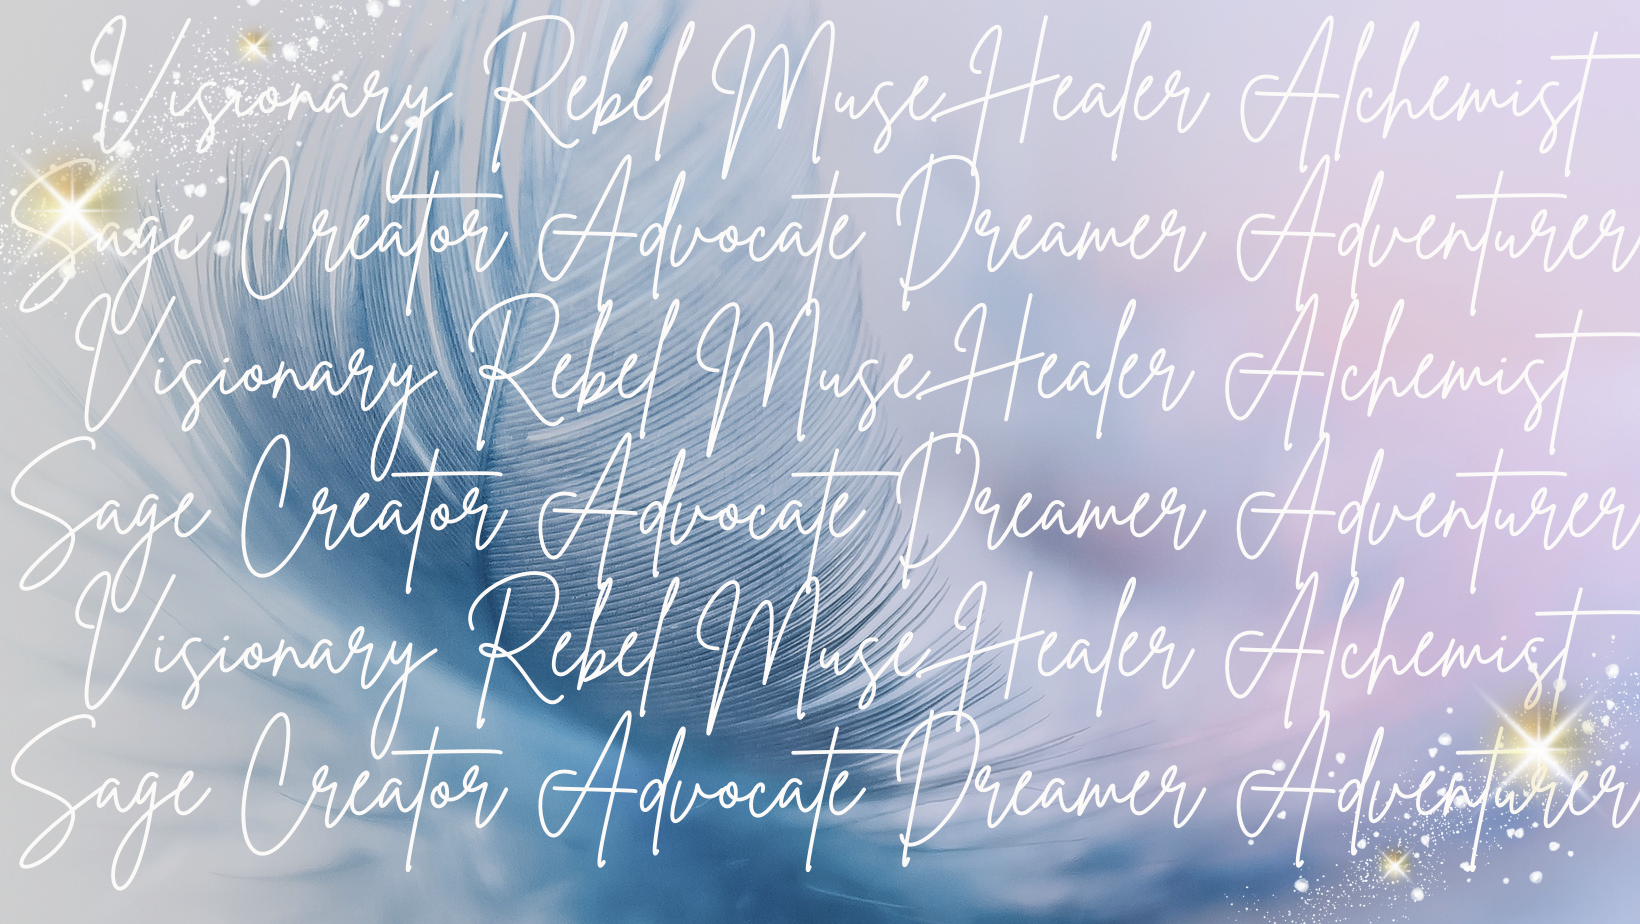 Visionary Rebel Muse Healer Alchemist
Sage Creator Advocate Dreamer Adventurer
Visionary Rebel Muse Healer Alchemist
Sage Creator Advocate Dreamer Adventurer
Visionary Rebel Muse Healer Alchemist
Sage Creator Advocate Dreamer Adventurer